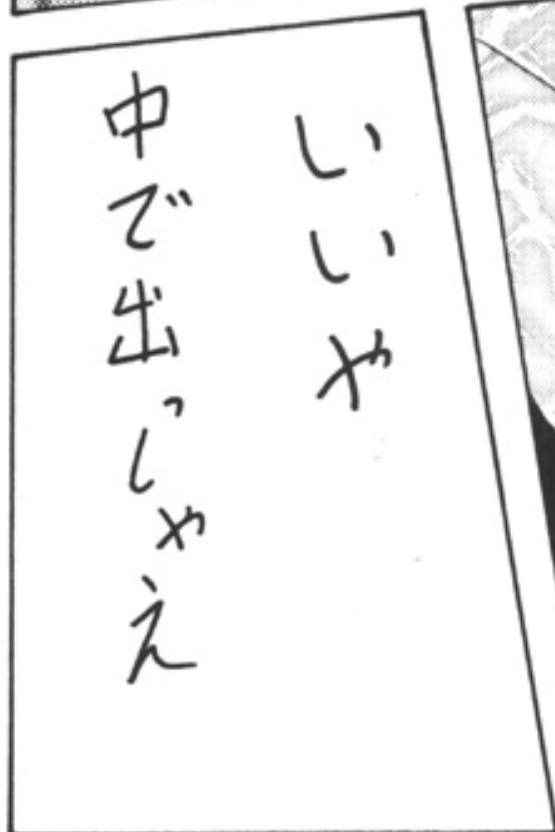 いいや
中で出っしゃえ